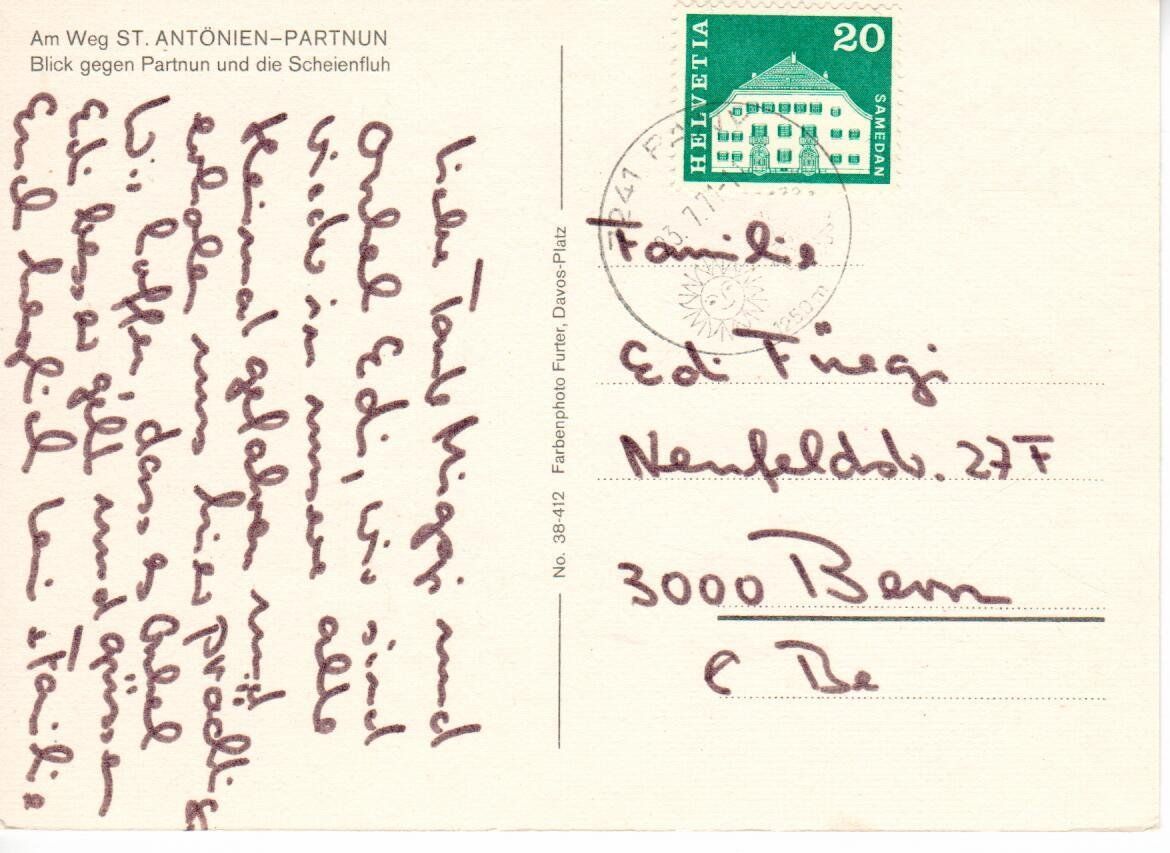 Am Weg ST. ANTÖNIEN–PARTNUN
Blick gegen Partnun und die Scheienfluh
Liebe Tante Miggi und
Onkel Edi, Wir sind
in unsere alte
Heimat gefahren
erholen uns hier prächtig
Wir hoffen, dass es Onkel
Edi besser geht und grüssen
Euch herzlich + Familie
No. 38-412 Farbenphoto Furter, Davos-Platz
HELVETIA
20
SAMEDAN
7241
1250 m
Familie
Edi Füegi
Neufeldstr. 27F
3000 Bern
Be